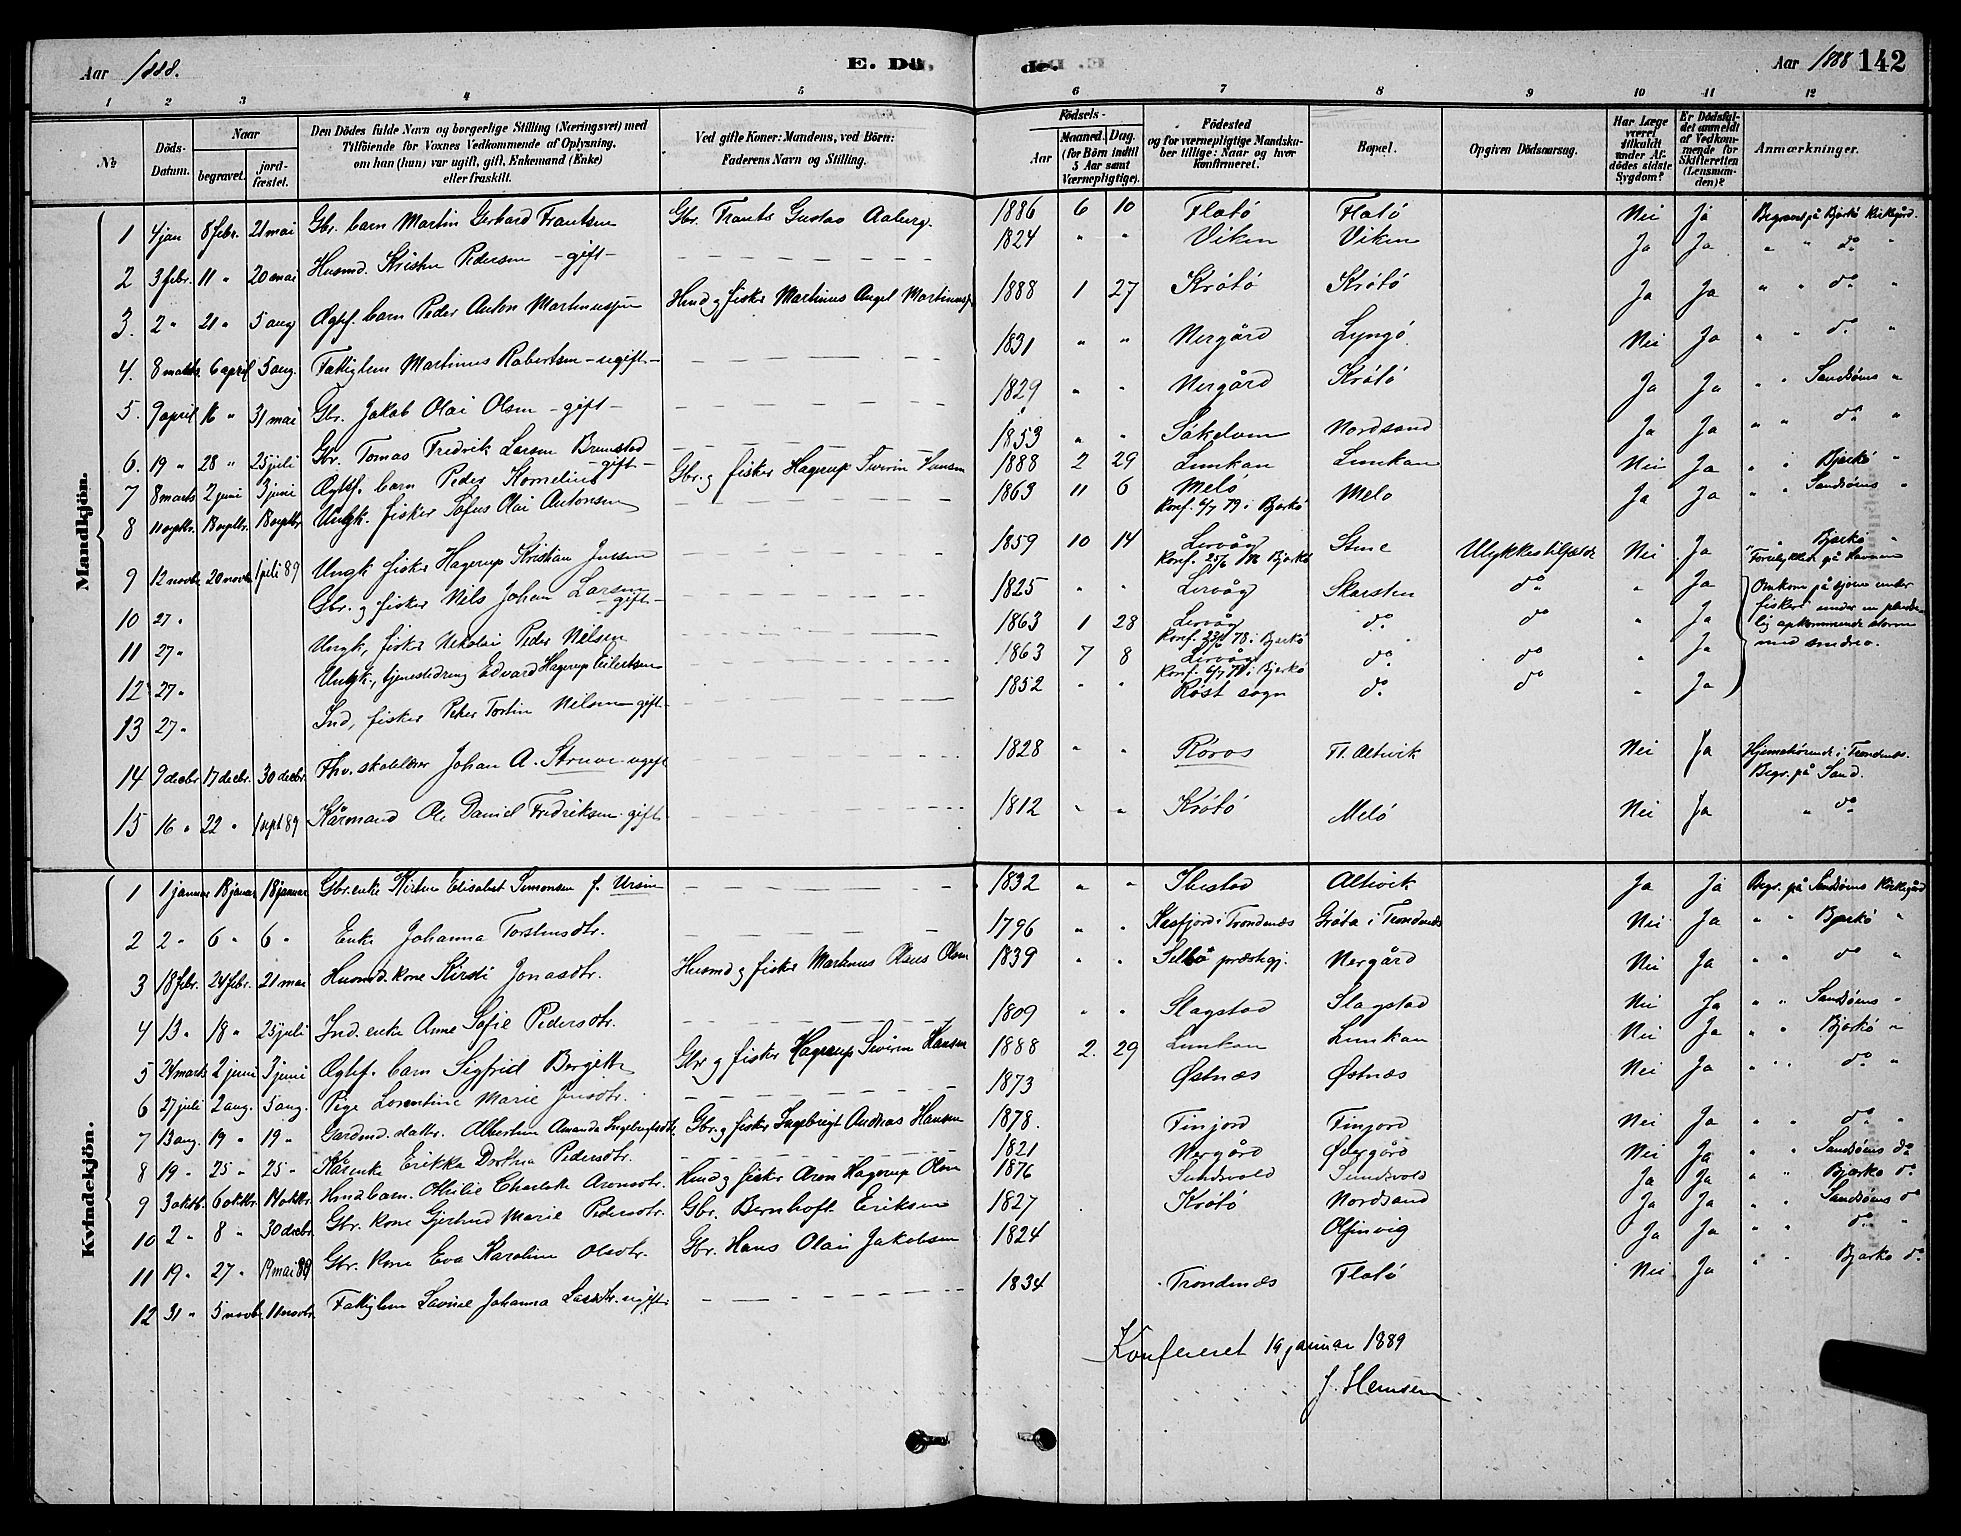 Aar 1888.
E. Dö
de.
Aar 1888 142
1 2 3 4 5 6 7 8 9 10 11 12
№
Döds-Datum.
Naar
begravet.
jordfæstet.
Den Dödes fulde Navn og borgerlige Stilling (Næringsvei) med
Tilföiende for Voxnes Vedkommende af Oplysning,
om han (hun) var ugift, gift, Enkemand (Enke)
eller fraskilt.
Ved gifte Koner: Mandens, ved Börn:
Faderens Navn og Stilling.
Födsels-
Aar
Maaned. Dag.
(for Börn indtil 5 Aar samt Værnepligtige).
Födested
og for værnepligtige Mandskaber tillige: Naar og hvor konfirmeret.
Bopæl.
Opgiven Dödsaarsag.
Har Læge været tilkaldt under Afdödes sidste Sygdom?
Er Dödsfaldet anmeldt af Vedkommende for Skifteretten (Lensmanden)?
Anmærkninger.
Mandkjön.
1 4 jan 8 febr. 21 mai Gbr. barn Martin Gerhard Frantsen Gbr. Frants Gustav Aaberg. 1886 6 10 Flatö Flatö Nei Ja Begravet på Bjarkö Kirkegård.
2 3 febr. 11 " 20 mai Husmd. Kristen Pedersen - gift - 1824 " " Viken Viken Ja Ja " " do "
3. 2 " 21 " 5 aug Ægtef. barn Peder Anton Martinussen Hmd og fisker Martinus Angel Martinuss 1888 1 27 Krötö Krötö Ja Ja " " do "
4. 8 marts 6 april 5 aug. Fattiglem Martinus Robertsen - ugift - 1831 " " Nergård Lyngö Nei Ja " " do "
5. 9 april 16 " 31 mai Gbr. Jakob Olai Olsen - gift - 1829 " " Nergård Krötö Ja Ja " " Sandsöens "
6. 19 " 28 " 25 juli Gbr. Tomas Fredrik Larsen Brunstad - gift - 1853 " " Nordsand Ja Ja " " do "
7 8 marts 2 juni 3 juni Ægtef. barn Peder Kornelius Gbr. og fisker Hagerup Severin Hansen 1888 2 29 Lunkan Lunkan Nei Ja " " Bjarkö "
8 11 septbr. 18 septbr. 18 septbr Ungk. fisker Sofus Olai Antonsen 1863 11 6 Melö Konf. 6/7 79 i Bjarkö Melö Ja Ja " " Sandsöens "
9 12 novbr 20 novbr 1 juli 89 Ungk fisker Hagerup Kristian Jensen 1859 10 14 Lervåg Bjarkö Ulykkestilfælde Nei Ja " Bjarkö " Forulykket på Havnen
10 27 " Gbr. og fisker Nils Johan Larsen - gift - 1825 " " Lervåg Skarsten do " Ja Omkom på sjöen under
11 27 " Ungk, fisker Nikolai Peder Nilsen 1863 1 28 Lervåg Konf. 78 i Bjarkö do do " Ja fiskeri under en pludse-
12 27 " Ungk., tjenestedreng Edvard Hagerup Eilertsen 1863 7 8 Lervåg Konf. 6/7 79 i Bjarkö do do " Ja lig opkommende storm
13 27 " Ind, fisker Peter Nilsen - gift - 1852 " " Röst sogn do do " Ja med snedrev.
14 9 decbr 17 decbr. 30 decbr. Fhv. skolelærer Johan A. Struve ugift 1828 " " Röros Altevik Nei Ja Hjemmehörende i Trondenæs. Begr. på Sand.
15 16 " 22 " 1 sept 89 Kårmand Ole Daniel Fredriksen gift 1812 " " Krötö Melö Nei Ja " do
Kvindekjön.
1 1 januar 18 januar 18 januar Gbr. enke Kirsten Elisabet Simonsen f. Ursin 1832 " " Ibestad Altevik Ja Ja Begr. på Sandsöens Kirkegård
2 2 " 6 " 6 " Enke Johanna Torstensdtr. 1796 " " Kasfjord i Trondenæs Gröta i Trondenæs Nei Ja " " Bjarkö "
3 18 febr. 24 febr. 21 mai Husmd. kone Kirsti Jonasdtr. Husmd og fisker Martinus Olaus Olsen 1839 " " Selbö præstegj. Nergård Nei Ja " " do "
4 13 " 18 " 25 juli Ind. enke Anne Sofie Pedersdtr. 1809 " " Slagstad Slagstad Nei Ja " " Sandsöens "
5 24 marts 2 juni 3 juni Ægtef. barn Sigfrid Bergitte Gbr og fisker Hagerup Severin Hansen 1888 2. 29 Lunkan Lunkan Nei Ja " " Bjarkö "
6 27 juli 2 aug. 5 aug. Pige Lorentine Marie Jensdtr. 1873 Østnæs Østnæs Nei Ja " " do "
7 13 aug. 19 " 19 " Gardmd. datter. Albertine Amanda Ingebrigtsdtr. Gbr. og fisker Ingebrigt Andreas Hansen 1878. Finjord Finjord Nei Ja " " do "
8 19 " 25 " 25 " Kårenke Erikka Drothea Pedersdtr. 1821 Nergård Övergård Nei Ja " " Sandsöens do
9 3 oktb. 6 oktbr. 14 oktbr. Hmd barn. Othilie Charlotte Aronsdtr. Hmd og fisker Aron Hagerup Olsen 1876 Sundsvold Sundsvold Ja Ja " " Bjarkö do
10 2 " 8 " 30 decbr. Gbr. kone Gjertrud Marie Pedersdtr. Gbr. Bernhoft Eriksen 1827 Krötö Nordsand Ja Ja " " Sandsöens do
11 19 " 27 " 19 mai 89 Gbr. kone Eva Karoline Olsdtr. Gbr. Hans Olai Jakobsen 1824 Ja Ja " " do "
12 31 " 5 novbr. 11 novbr. Fattiglem Lavine Johanna Larsdtr. ugift 1834 Trondenæs Flatö Nei Ja " " Bjarkö do
Konfereret 19 januar 1889